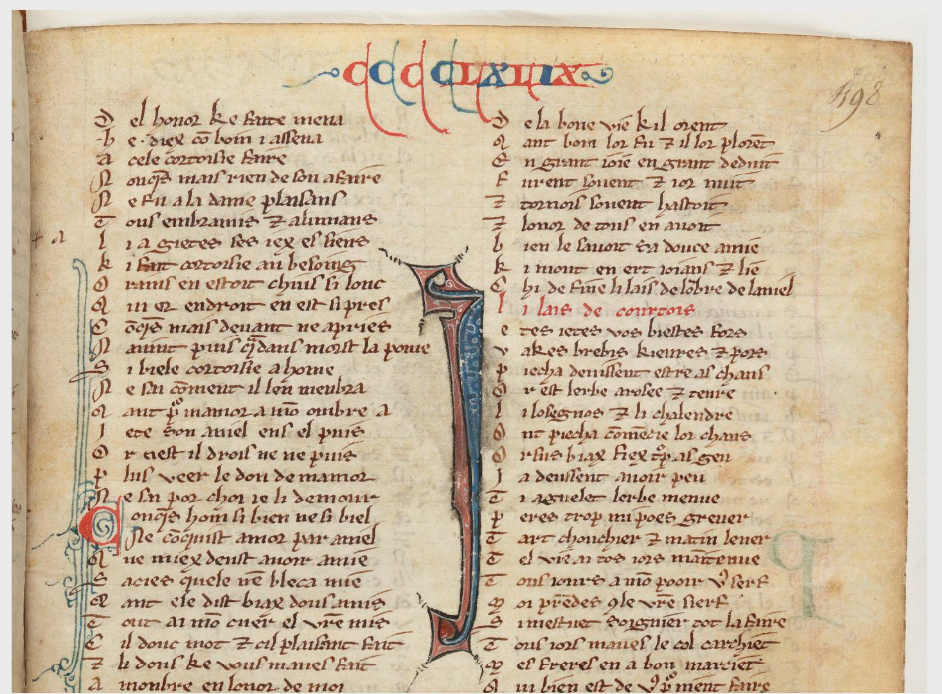 CCCCLXLIX
498
D el honor ke faite mena
h e diex cō boin i assena
A cele cortoisie faire
N onq̄s mais rien de son afaire
N e fu a la dame plaisans
T ous embramis ⁊ alumans
l i a gietes ses iex es siens
k i fait cortoisie au besoing
O rains en estoit chius si lonc
Q ui or endroit en est si pres
C ōq̄s mais devant ne apries
N avint puis q̄dans morst la pome
S i biele cortoisie a home
N e sai cōment il len menbra
Q ant pͦ mamor a mō ombre a
I ete son aniel ens el puis
O r nest il drois ne ne puis
P lus veer le don de mamor
N e sai por choi ie li demour
onq̄s hom si bien ne si biel
Ne cōquist amor par aniel
Q ue miex deust avoir amie
S acies quele nē bleca mie
Q ant ele dist biax dous amis
T out ai mō cuer el vre mis
C il douc mot ⁊ cil plaisant fait
⁊ li dons ke vous maves fait
A monbre en lonor de moi
D e la bone vie kil orent
Q ant boin lor fu ⁊ il lor plorēt
E n grant ioie en grant deduit
F urent sovent ⁊ ior nuit
⁊ tornois sovent hastoit
⁊ lonor de tous en avoit
b ien le savoit sa douce amie
k i mout en ert ioians ⁊ lie
C hi define li lais de lōbre de laniel
l i lais de courtois
e tes ietes vos biestes fors
v akes brebis kieures ⁊ pors
p iecha deuissent estre as chans
O r est lerbe arosee ⁊ tenre
l i losegnos ⁊ li chalendre
O nt piecha cōmēcie lor chans
I a deussent avoir peu
T i agnelet lerbe menue
P eres trop mi poes grever
T art chouchier ⁊ matin lever
T el vie ai tos iors maītenue
T ous iours a mō pooir
M oi prēdes
S i mestuet soignier tot la faire
T ous iors maves le col carchiet
M es freres en a bon marciet
Q ui bien est de